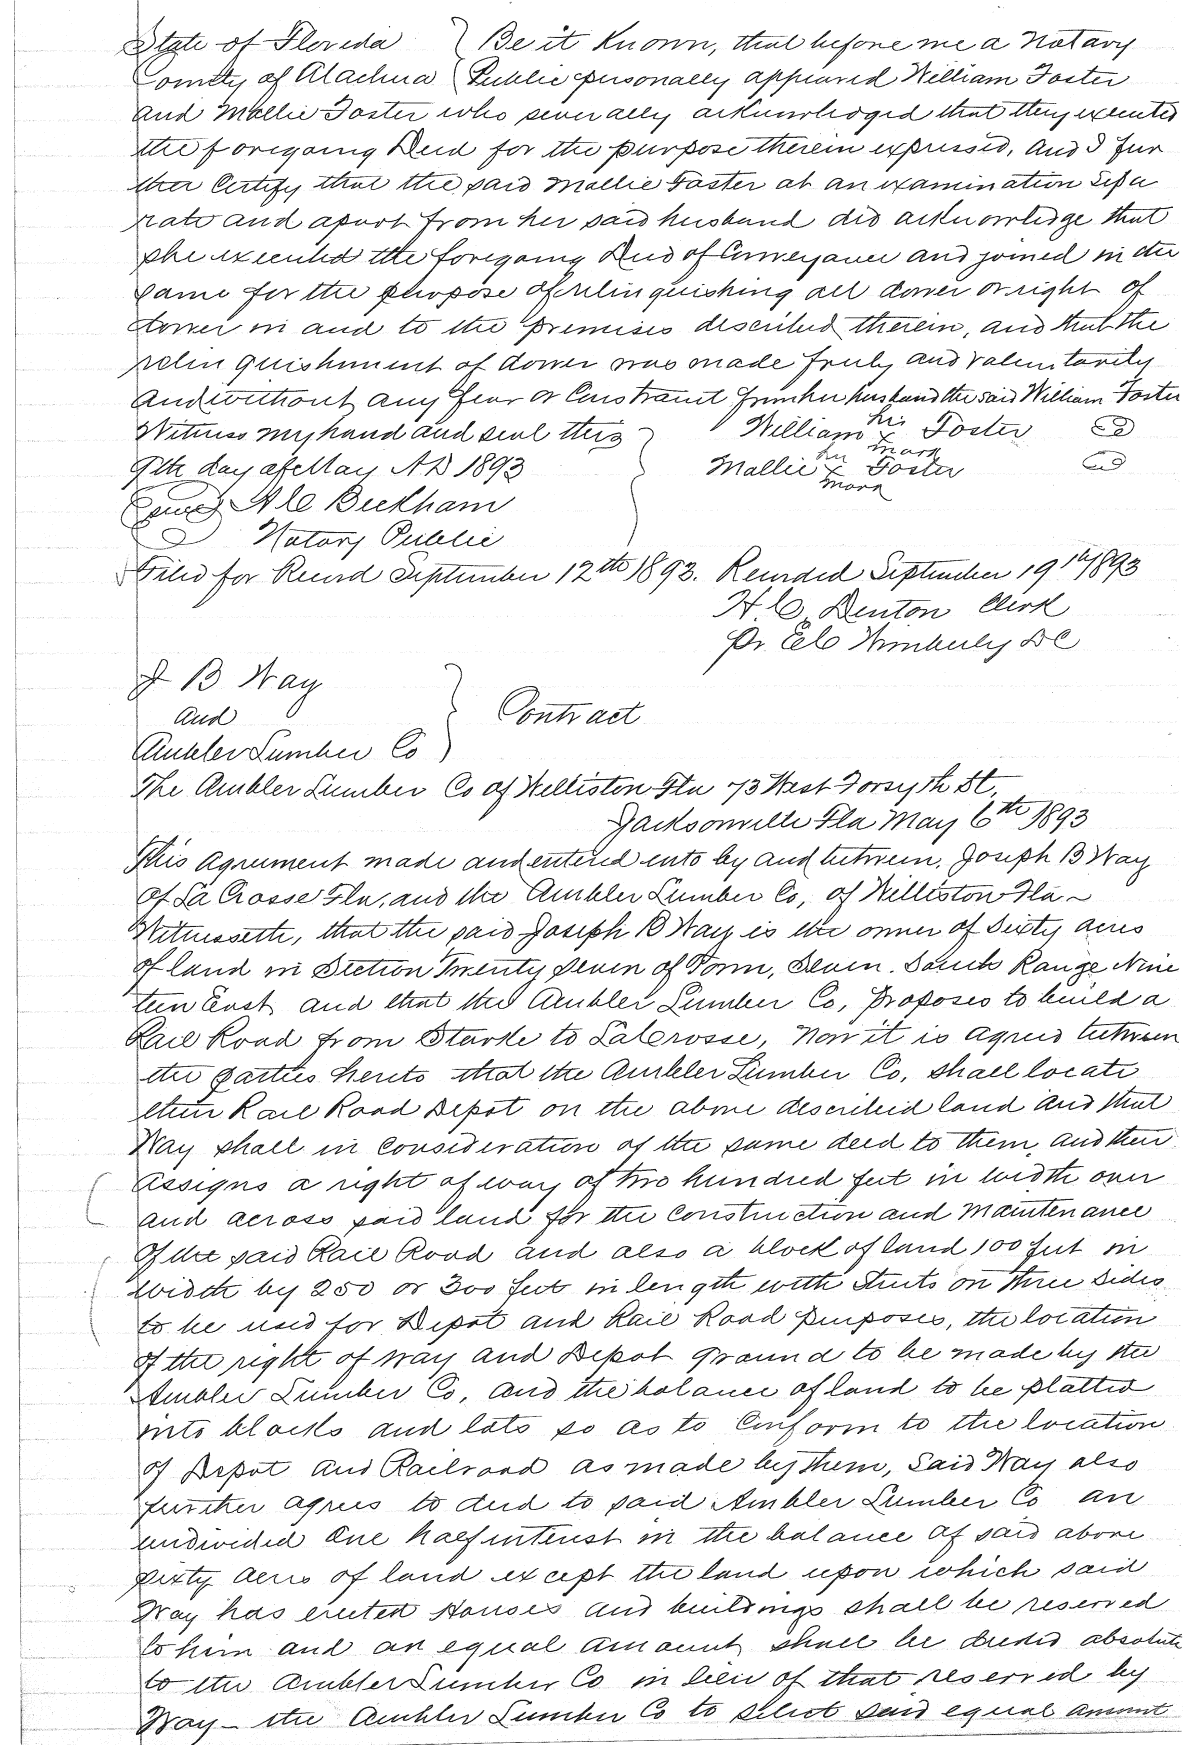 State of Florida } Be it Known, that before me a Notary
County of Alachua } Public personally appeared William Foster
and Mollie Foster who severally acknowledged that they executed
the foregoing Deed for the purpose therein expressed, and I fur
ther Certify that the said Mollie Foster at an examination sepa
rate and apart from her said husband did acknowledge that
she executed the foregoing Deed of Conveyance and joined in the
same for the purpose of relinquishing all dower or right of
dower in and to the premises described therein, and that the
relinquishment of dower was made freely and voluntarily
and without any fear or Constraint from her husband the said William Foster
Witness my hand and seal this } William his x mark Foster
9th day of May AD 1893 } Mallie her x mark Foster
A C Beckham
Notary Public
Filed for Record September 12th 1893. Recorded September 19th 1893
H. C. Denton Clerk
Pr. E C Wimberly DC
J B Way
and } Contract
Ambler Lumber Co
The Ambler Lumber Co of Williston Fla 73 West Forsyth St,
Jacksonville Fla May 6th 1893
This agreement made and entered into by and between, Joseph B Way
of La Crosse Fla, and the Ambler Lumber Co, of Williston Fla~
Witnesseth, that the said Joseph B Way is the owner of Sixty acres
of land in Section Twenty Seven of Town, Seven. South Range Nine
teen East and that the Ambler Lumber Co, proposes to build a
Rail Road from Starke to LaCrosse, Now it is agreed between
the parties hereto that the Ambler Lumber Co, shall locate
their Rail Road Depot on the above described land and that
Way shall in consideration of the same deed to them, and their
assigns a right of way of two hundred feet in width over
and across said land for the construction and maintenance
of the said Rail Road and also a block of land 100 feet in
width by 250 or 300 feet in length with streets on three sides
to be used for Depot and Rail Road purposes, the location
of the right of way and Depot ground to be made by the
Ambler Lumber Co, and the balance of land to be platted
into blocks and lots so as to Conform to the location
of Depot and Railroad as made by them, Said Way also
further agrees to deed to said Ambler Lumber Co an
undivided One half interest in the balance of said above
sixty acres of land except the land upon which said
Way has erected Houses and buildings shall be reserved
to him and an equal amount shall be deeded absolute
to the Ambler Lumber Co in lieu of that reserved by
Way - the Ambler Lumber Co to select said equal amount